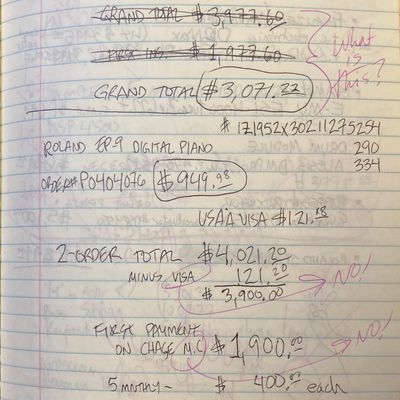 GRAND TOTAL $3,977.60
FIRST INS. $1,977.60
What is this?
GRAND TOTAL $3,071.22
# 171952X30211275254
ROLAND EP.9 DIGITAL PIANO 290
334
ORDER# P0404076 $949.98
USAA VISA $121.
2-ORDER TOTAL $4,021.20
MINUS VISA 121.20
NO!
$3,900.00
FIRST PAYMENT
ON CHASE M.C. $1,900.00
NO!
5 MNTHLY- $400.00 each